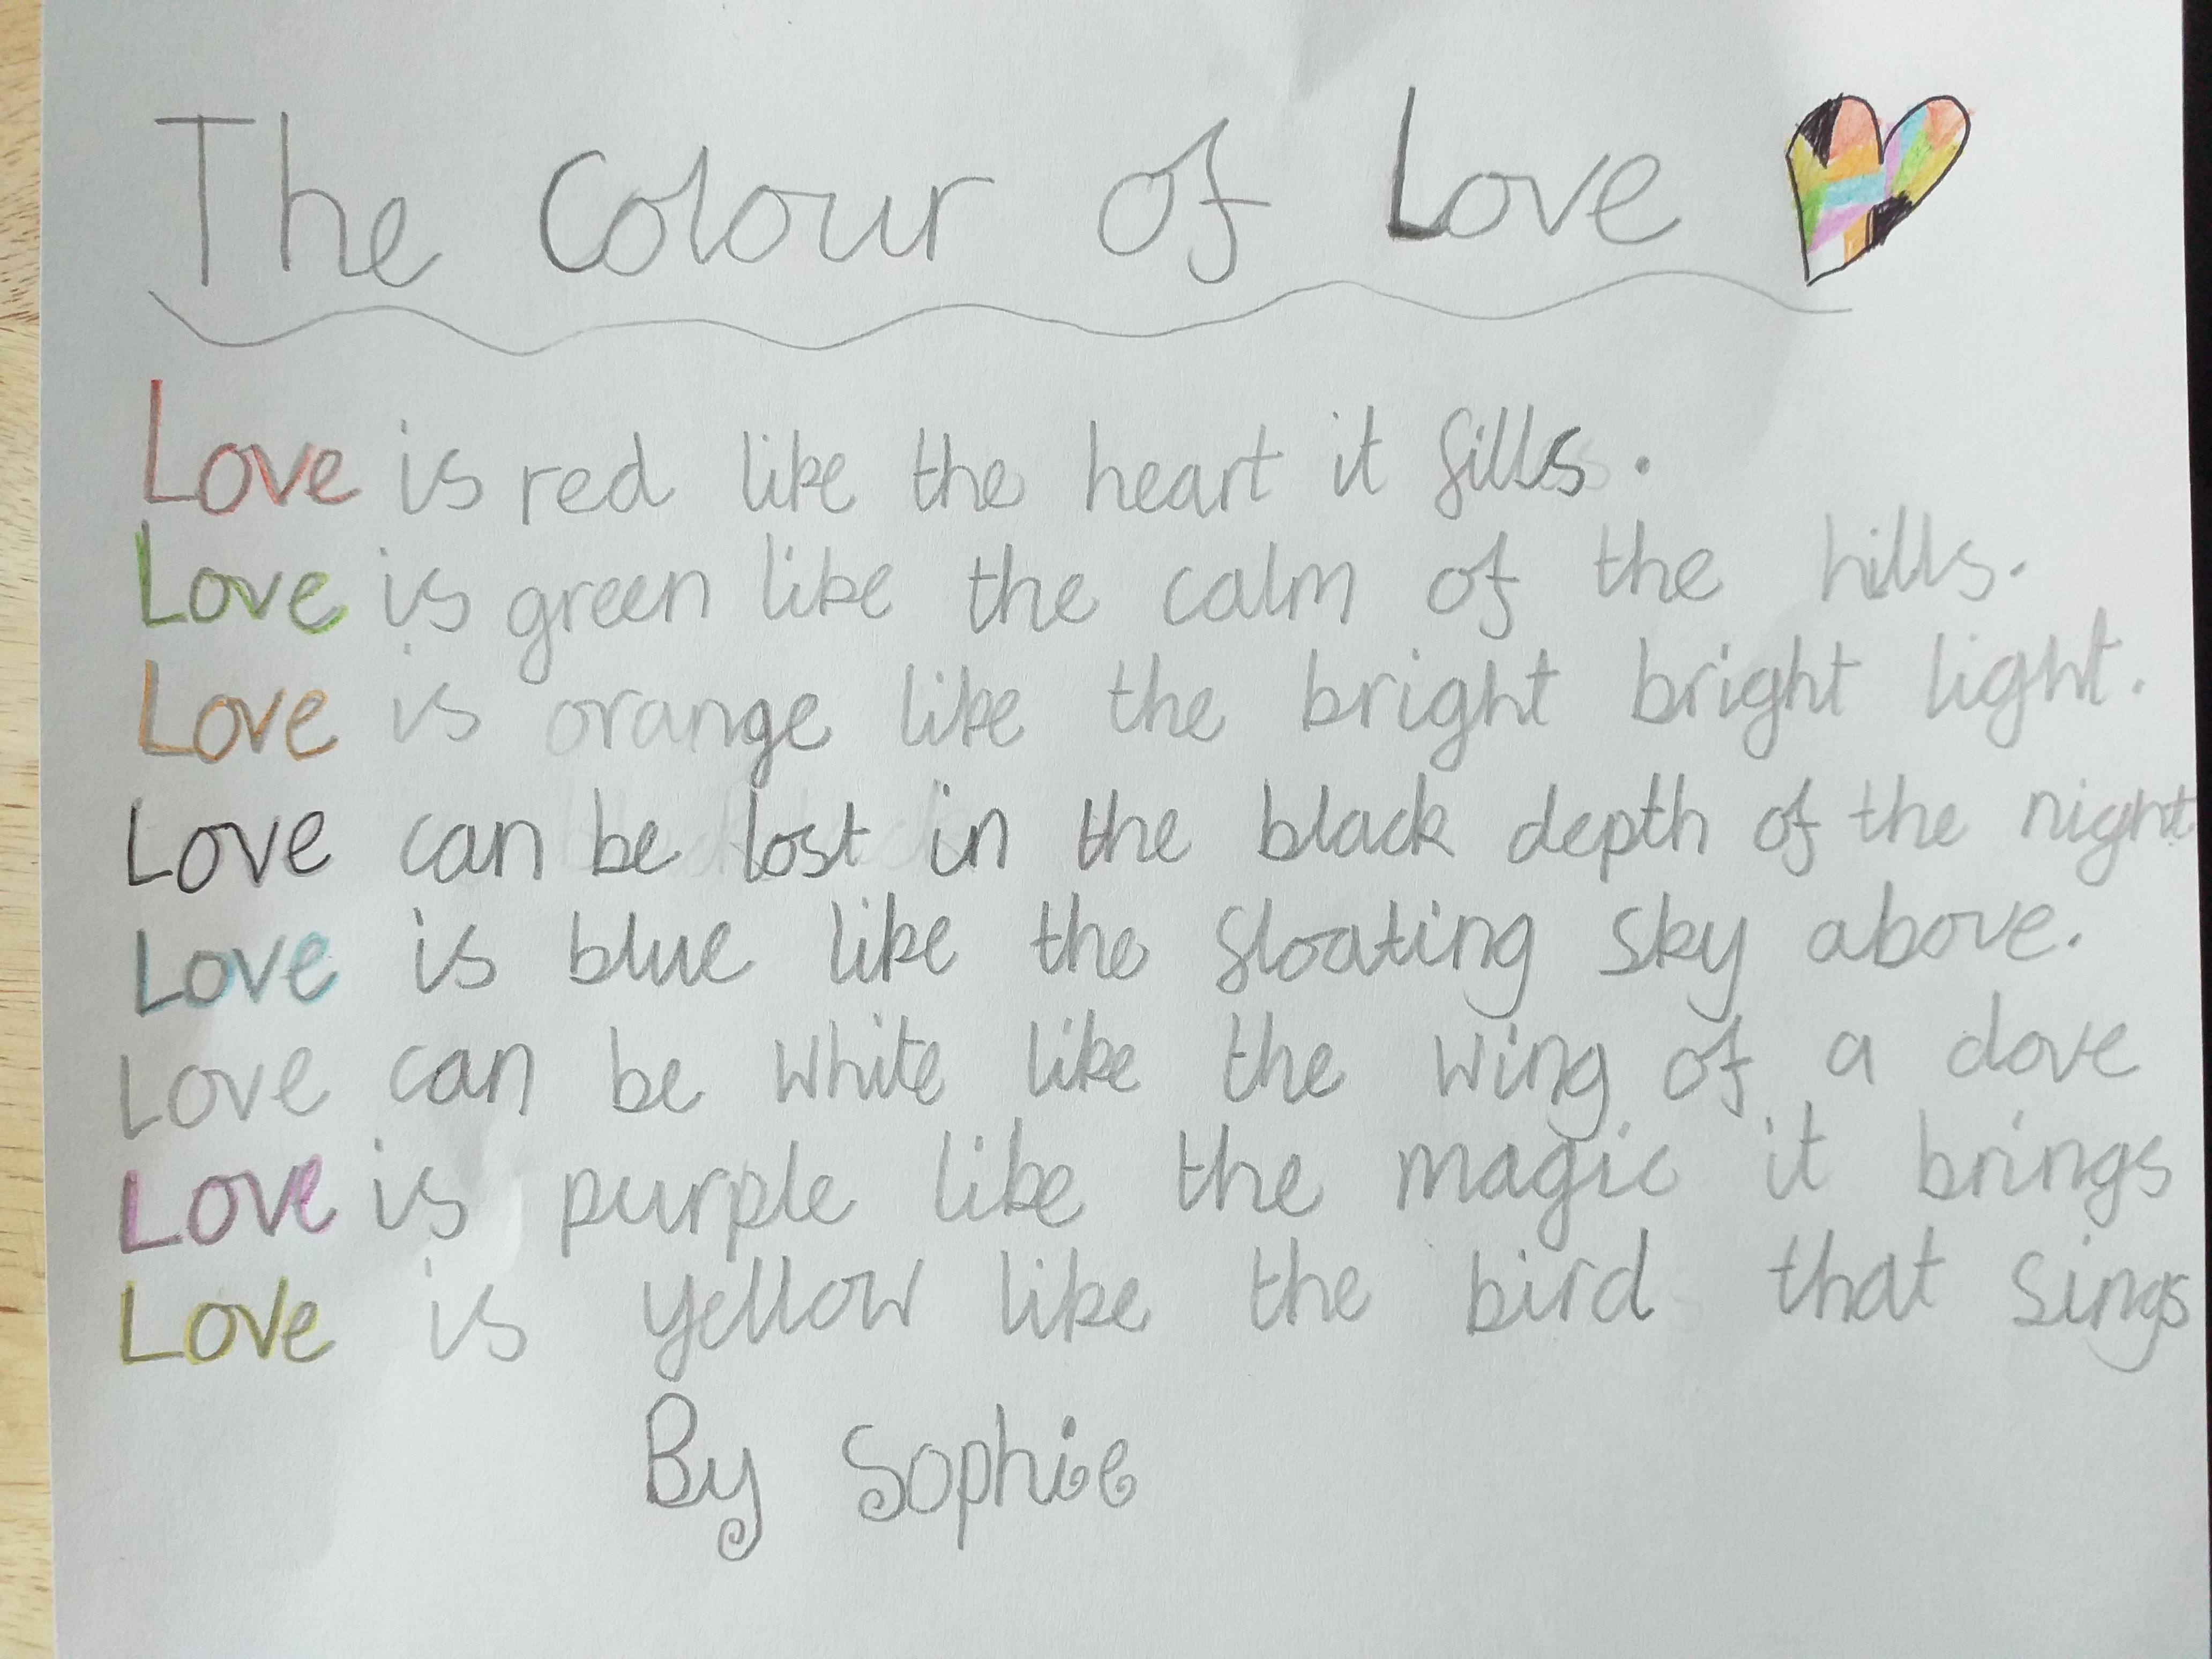 The Colour of Love
Love is red like the heart it fills.
Love is green like the calm of the hills.
Love is orange like the bright bright light.
Love can be lost in the black depth of the night
Love is blue like the floating sky above.
Love can be white like the wing of a dove
Love is purple like the magic it brings
Love is yellow like the bird that sings
By Sophie